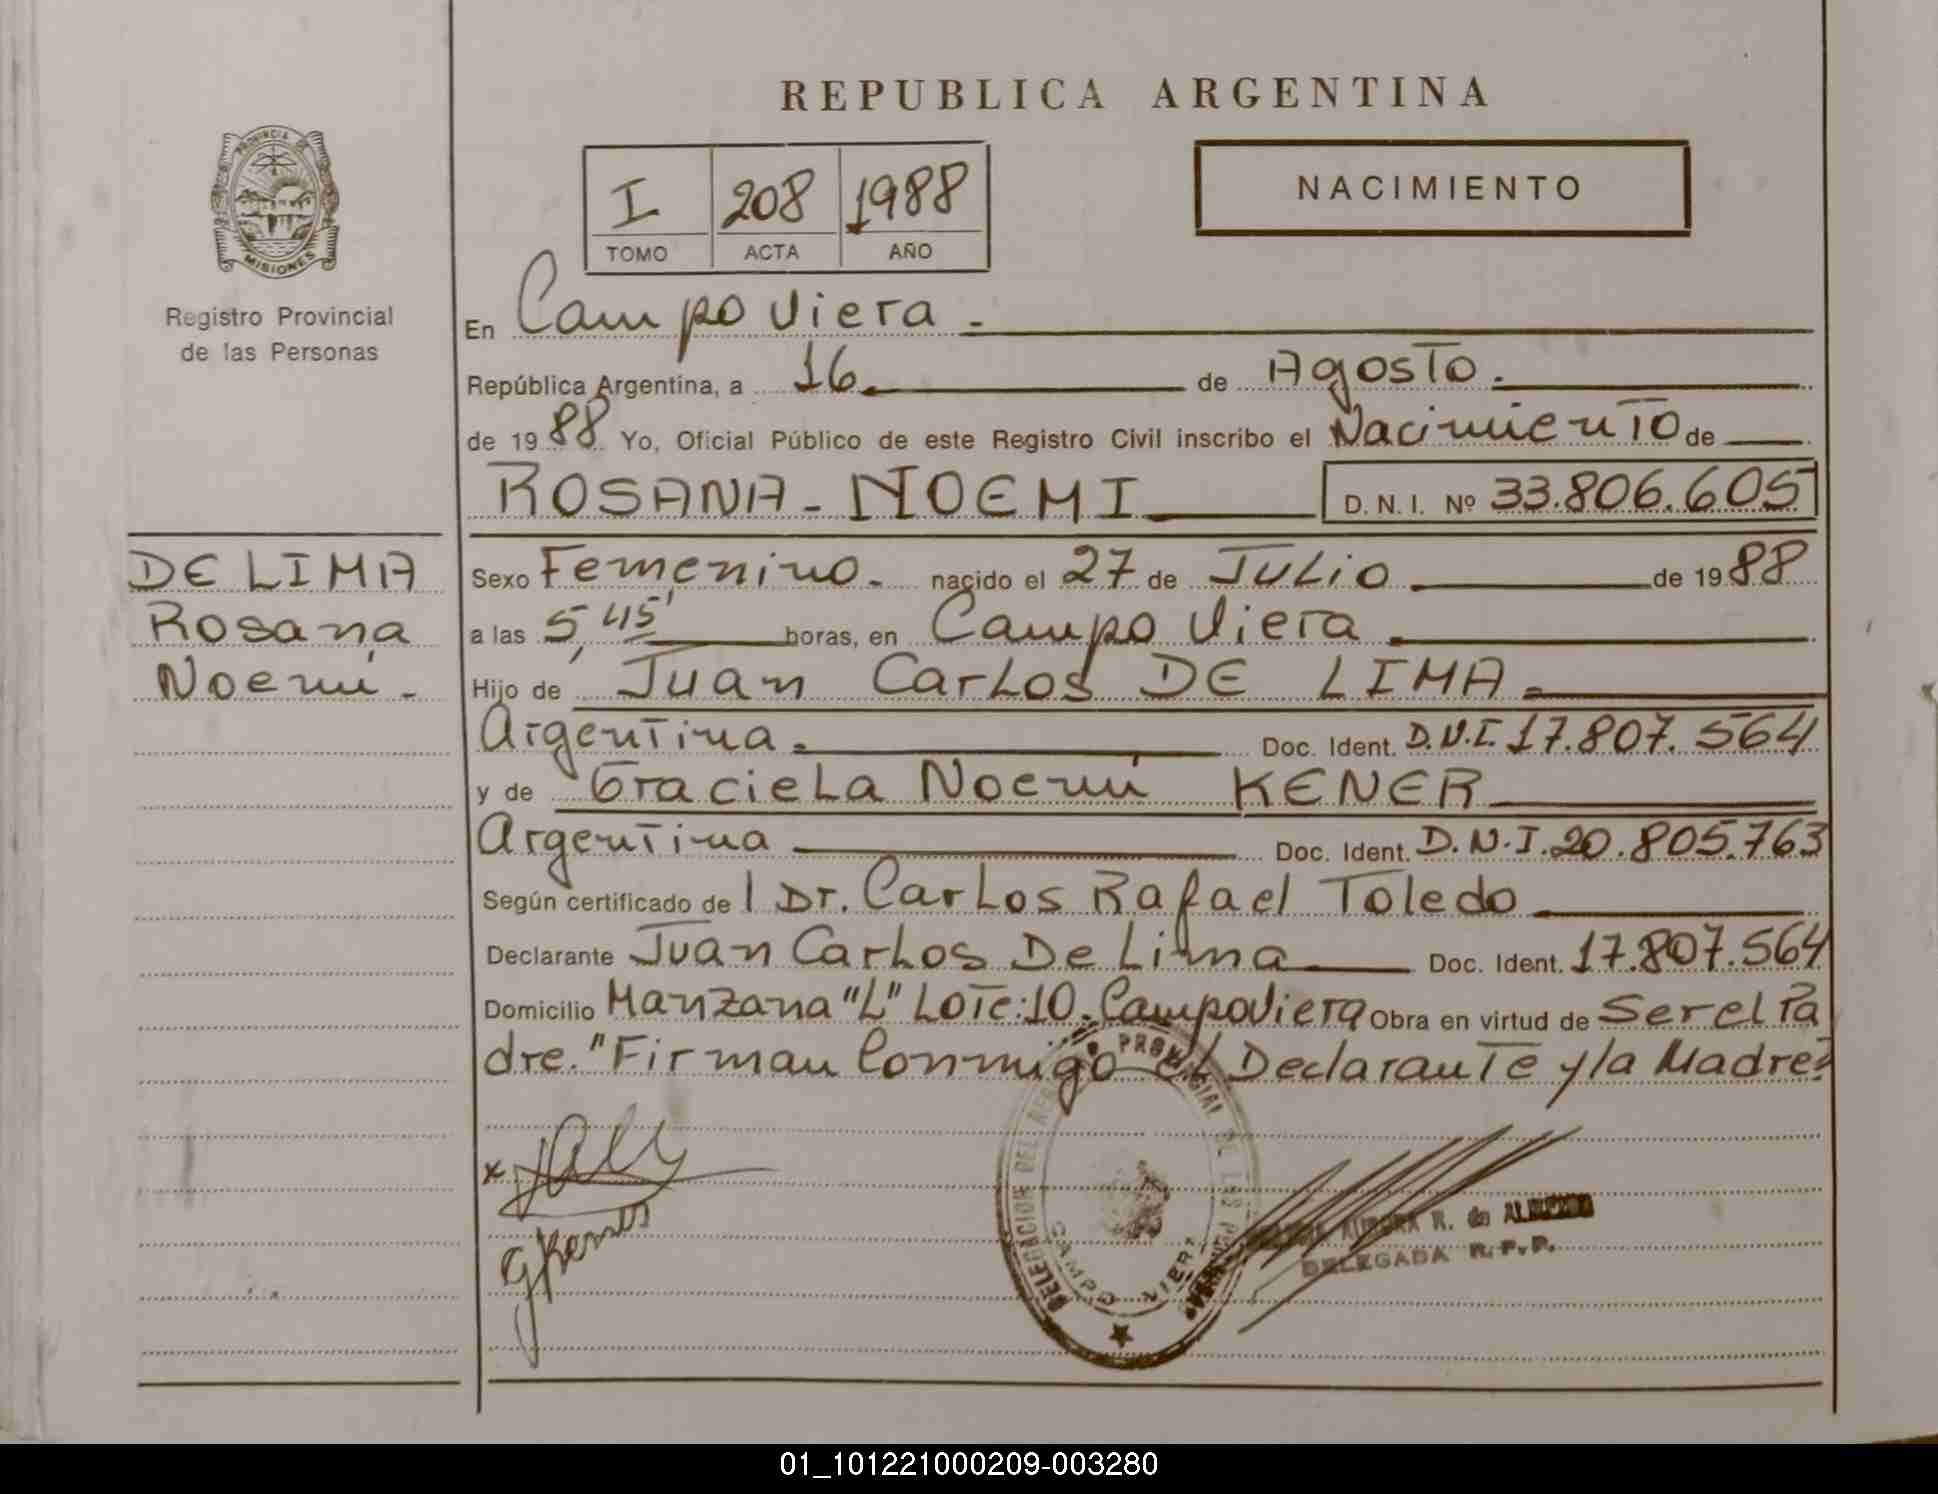 REPUBLICA ARGENTINA
PROVINCIA DE
MISIONES
Registro Provincial
de las Personas
I 208 1988
TOMO ACTA AÑO
NACIMIENTO
En Campo Viera.
República Argentina, a 16 de Agosto.
de 1988 Yo, Oficial Público de este Registro Civil inscribo el Nacimiento de
ROSANA-NOEMI D. N. I. Nº 33.806.605
DE LIMA
Rosana
Noemí.-
Sexo Femenino. nacido el 27 de Julio de 1988
a las 5,45' horas, en Campo Viera
Hijo de Juan Carlos DE LIMA
Argentina. Doc. Ident. D.N.I. 17.807.564
y de Graciela Noemí KENER
Argentina Doc. Ident. D.N.I. 20.805.763
Según certificado de l Dr. Carlos Rafael Toledo
Declarante Juan Carlos De Lima Doc. Ident. 17.807.564
Domicilio Manzana "L" Lote:10. Campo Viera Obra en virtud de Ser el Pa
dre. "Firman Conmigo el Declarante y la Madre"
DELEGACION DEL DE LAS
CAMPO VIERA
AURORA R. de
DELEGADA R.P.P.
01_101221000209-003280